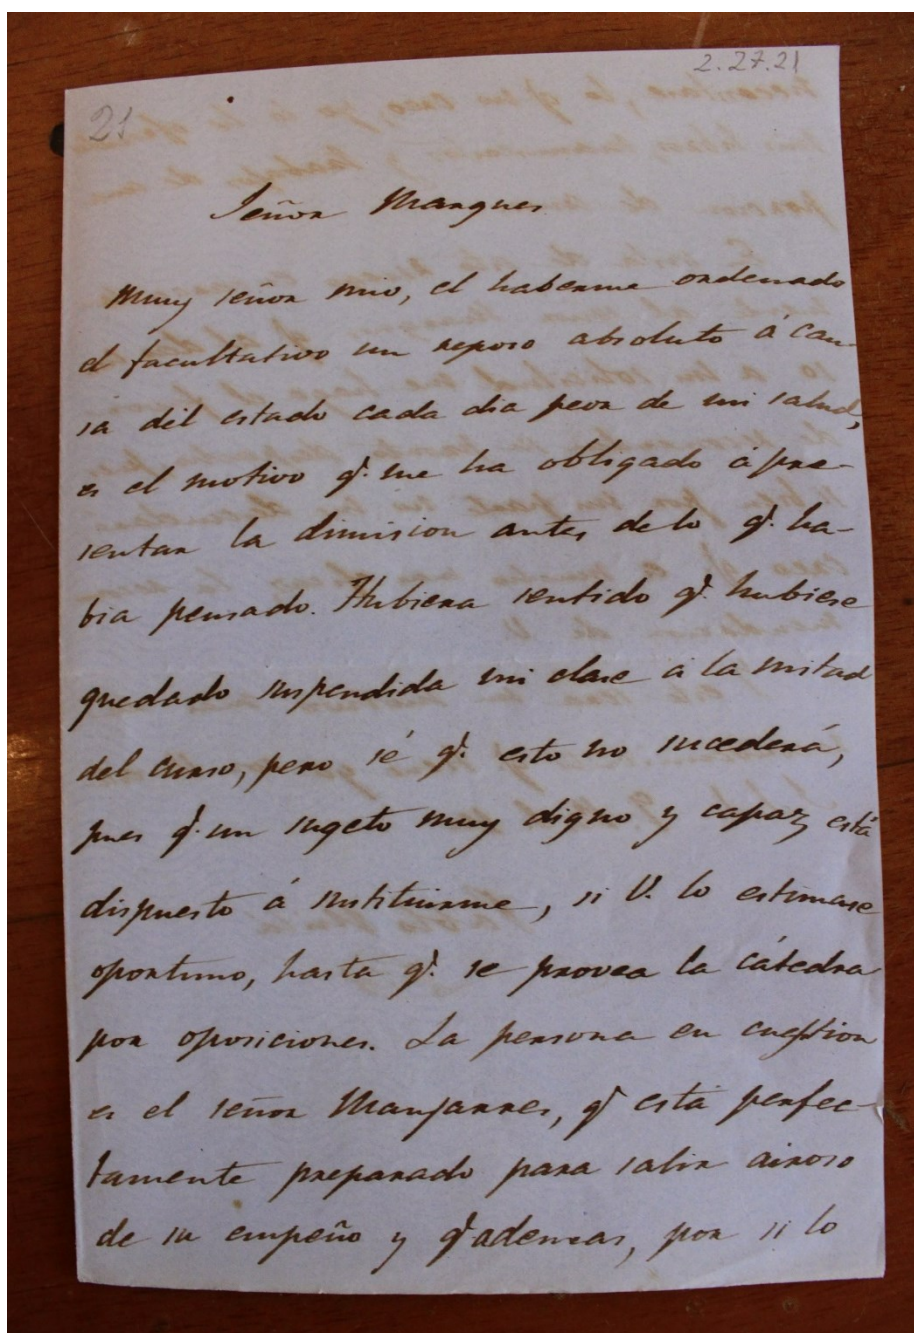 2.27.21
21
Señor Marques
Muy señor mio, el haberme ordenado
el facultativo un reposo absoluto á cau-
sa dil estado cada dia peor de mi salud,
es el motivo q.e me ha obligado á pre-
sentar la dimision antes de lo q.e ha-
bia pensado. Hubiera sentido q.e hubiese
quedado suspendida mi clase á la mitad
del curso, pero sé q.e esto no sucederá,
pues q.e un sugeto muy digno y capaz está
dispuesto á sustituirme, si V. lo estimase
oportuno, hasta q.e se provea la cátedra
por oposiciones. La persona en cuestion
es el señor Manjarres, q.e está perfec-
tamente preparado para salir airoso
de su empeño y q.e ademas, por si lo